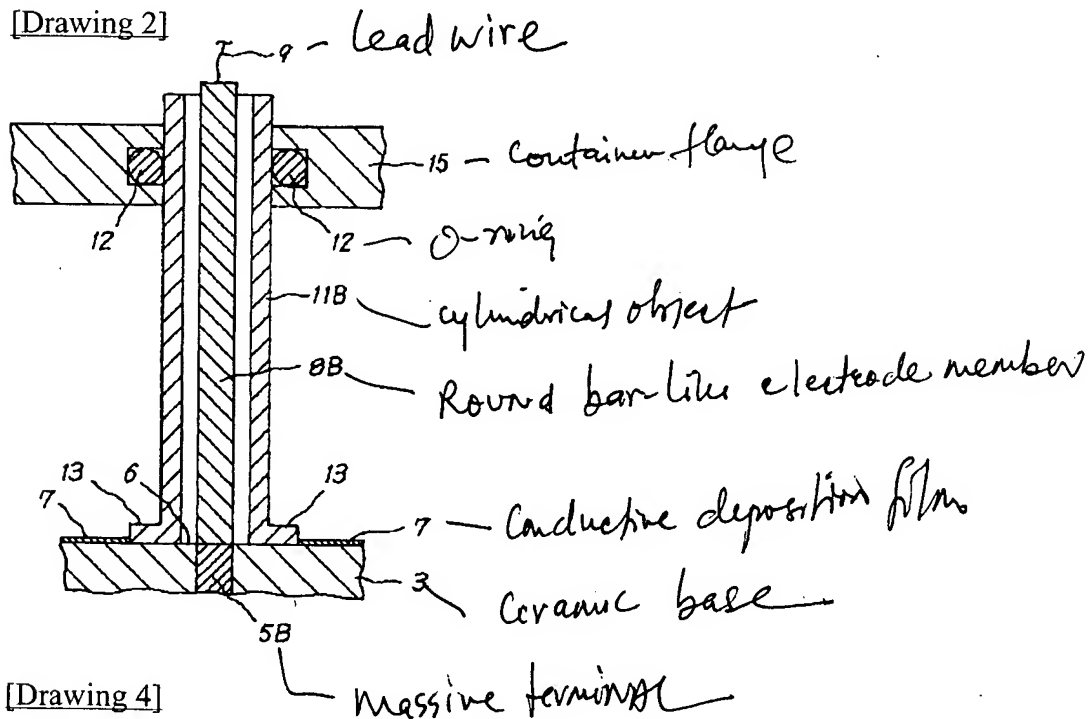 [Drawing 2]
9 - Lead wire
15 - Container flange
12 12 - O-ring
11B cylindrical object
8B Round bar-like electrode member
13 6 13
7 7 - Conductive deposition film
3 Ceramic base
5B massive terminal
[Drawing 4]